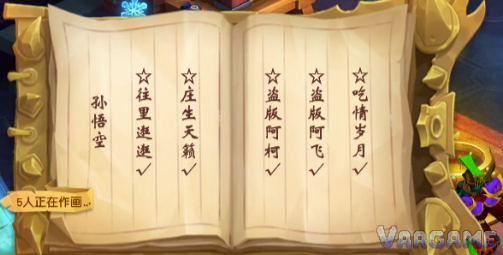 ☆吃情岁月✓
☆盗版阿飞✓
☆盗版阿柯✓
☆庄生天籁✓
☆往里逛逛✓
孙悟空
5人正在作画...
VARGAME